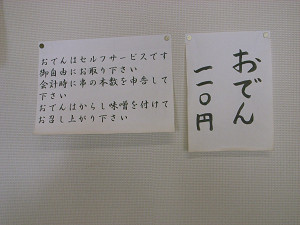 おでんはセルフサービスです
御自由にお取り下さい
会計時に串の本数を申告して
下さい
おでんはからし味噌を付けて
お召し上がり下さい
おでん
一一〇円